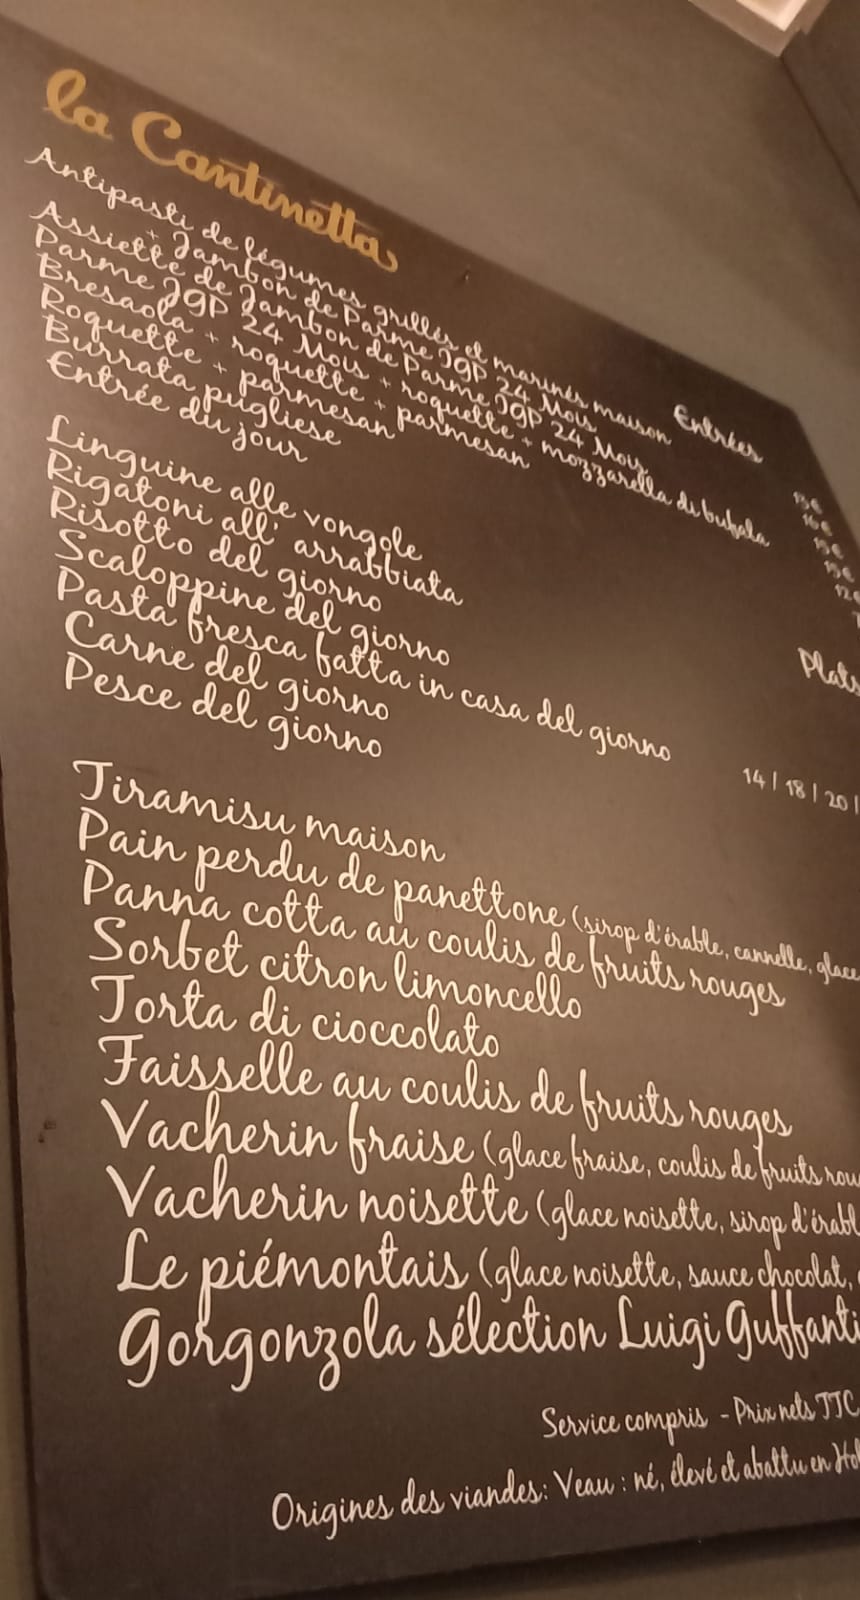 la Cantinetta
Entrées
Antipasti de légumes grillés et marinés maison
+ Jambon de Parme IGP 24 Mois
Assiette de Jambon de Parme IGP 24 Mois
Parme IGP 24 Mois + roquette + mozzarella di bufala
Bresaola + roquette + parmesan
Roquette + parmesan
Burrata pugliese
Entrée du jour
Plats
Linguine alle vongole
Rigatoni all' arrabbiata
Risotto del giorno
Scaloppine del giorno
Pasta fresca fatta in casa del giorno
Carne del giorno
Pesce del giorno
14 | 18 | 20 |
Tiramisu maison
Pain perdu de panettone (sirop d'érable, cannelle, glace
Panna cotta au coulis de fruits rouges
Sorbet citron limoncello
Torta di cioccolato
Faisselle au coulis de fruits rouges
Vacherin fraise (glace fraise, coulis de fruits rou
Vacherin noisette (glace noisette, sirop d'érabl
Le piémontais (glace noisette, sauce chocolat,
Gorgonzola sélection Luigi Guffanti
Service compris - Prix nets TTC
Origines des viandes: Veau : né, élevé et abattu en Hol